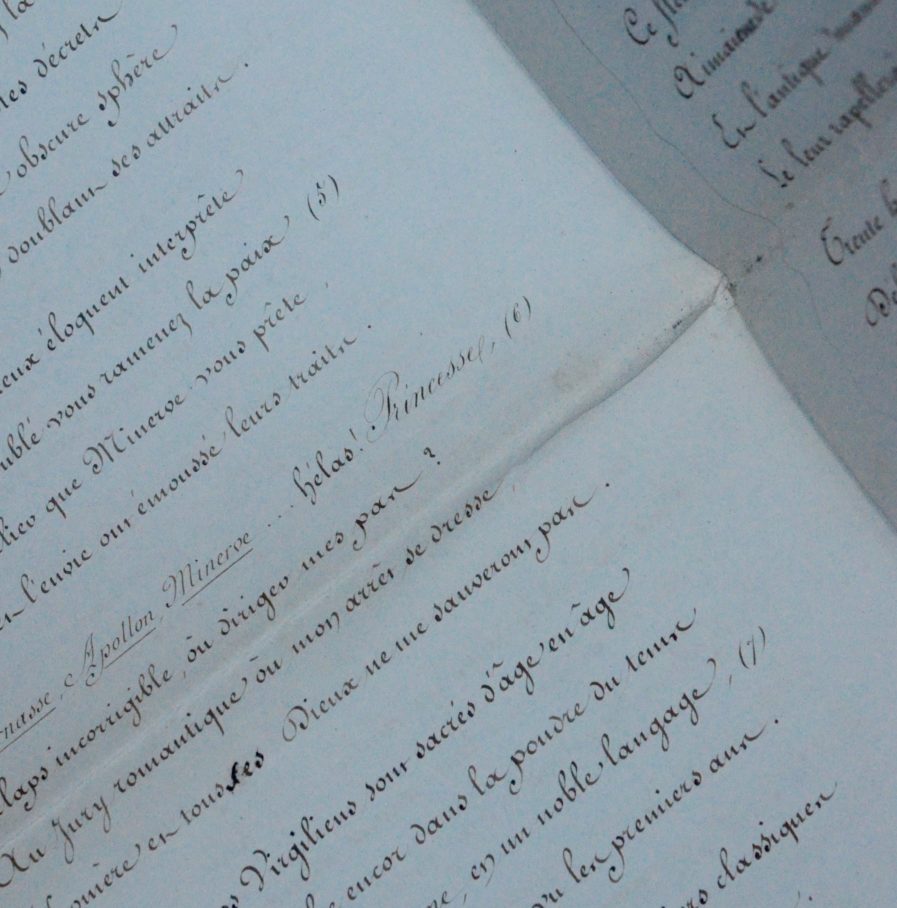 la
les décrets
obscure sphère
doublant ses attraits.
éloquent interprète
vous ramenez la paix (5)
que Minerve vous prête,
l'envie ont émoussé leurs traits.
nasse, Apollon, Minerve ... hélas! Princesse, (6)
laps incorrigible, où diriger mes pas?
Au Jury romantique où mon arrêt se dresse,
en tous les Dieux ne me sauveront pas.
Virgiliens sont sacrés d'âge en âge
encor dans la poudre du tems
en un noble langage, (7)
les premiers ans.
classiques
Ce
En l'antique
Se leur
Trente